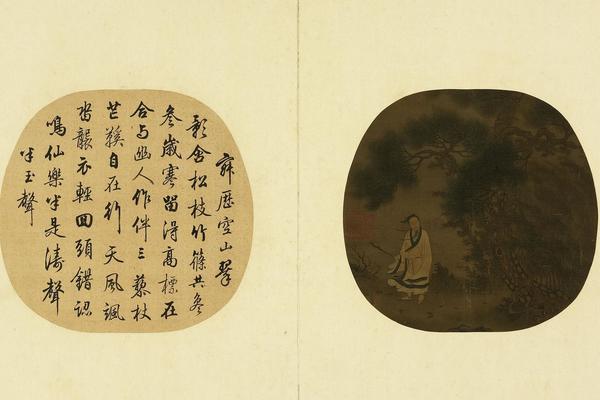 寂歷空山翠
影含松枝竹篠共叅
叅歲寒留得高標在
合与幽人作伴三藜杖
芒鞵自在行天風颯
沓襲衣輕回頭錯認
鳴仙樂半是濤聲
半玉聲